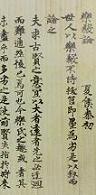 樂毅論
夏侯泰初
世人以樂毅不時拔莒即墨為劣是以叙而
論之
夫求古賢之意宜以大者遠者先之必迂迴
而難通然後已焉可也今樂氏之趣或者其
未盡乎而多劣之是使前賢失指於將